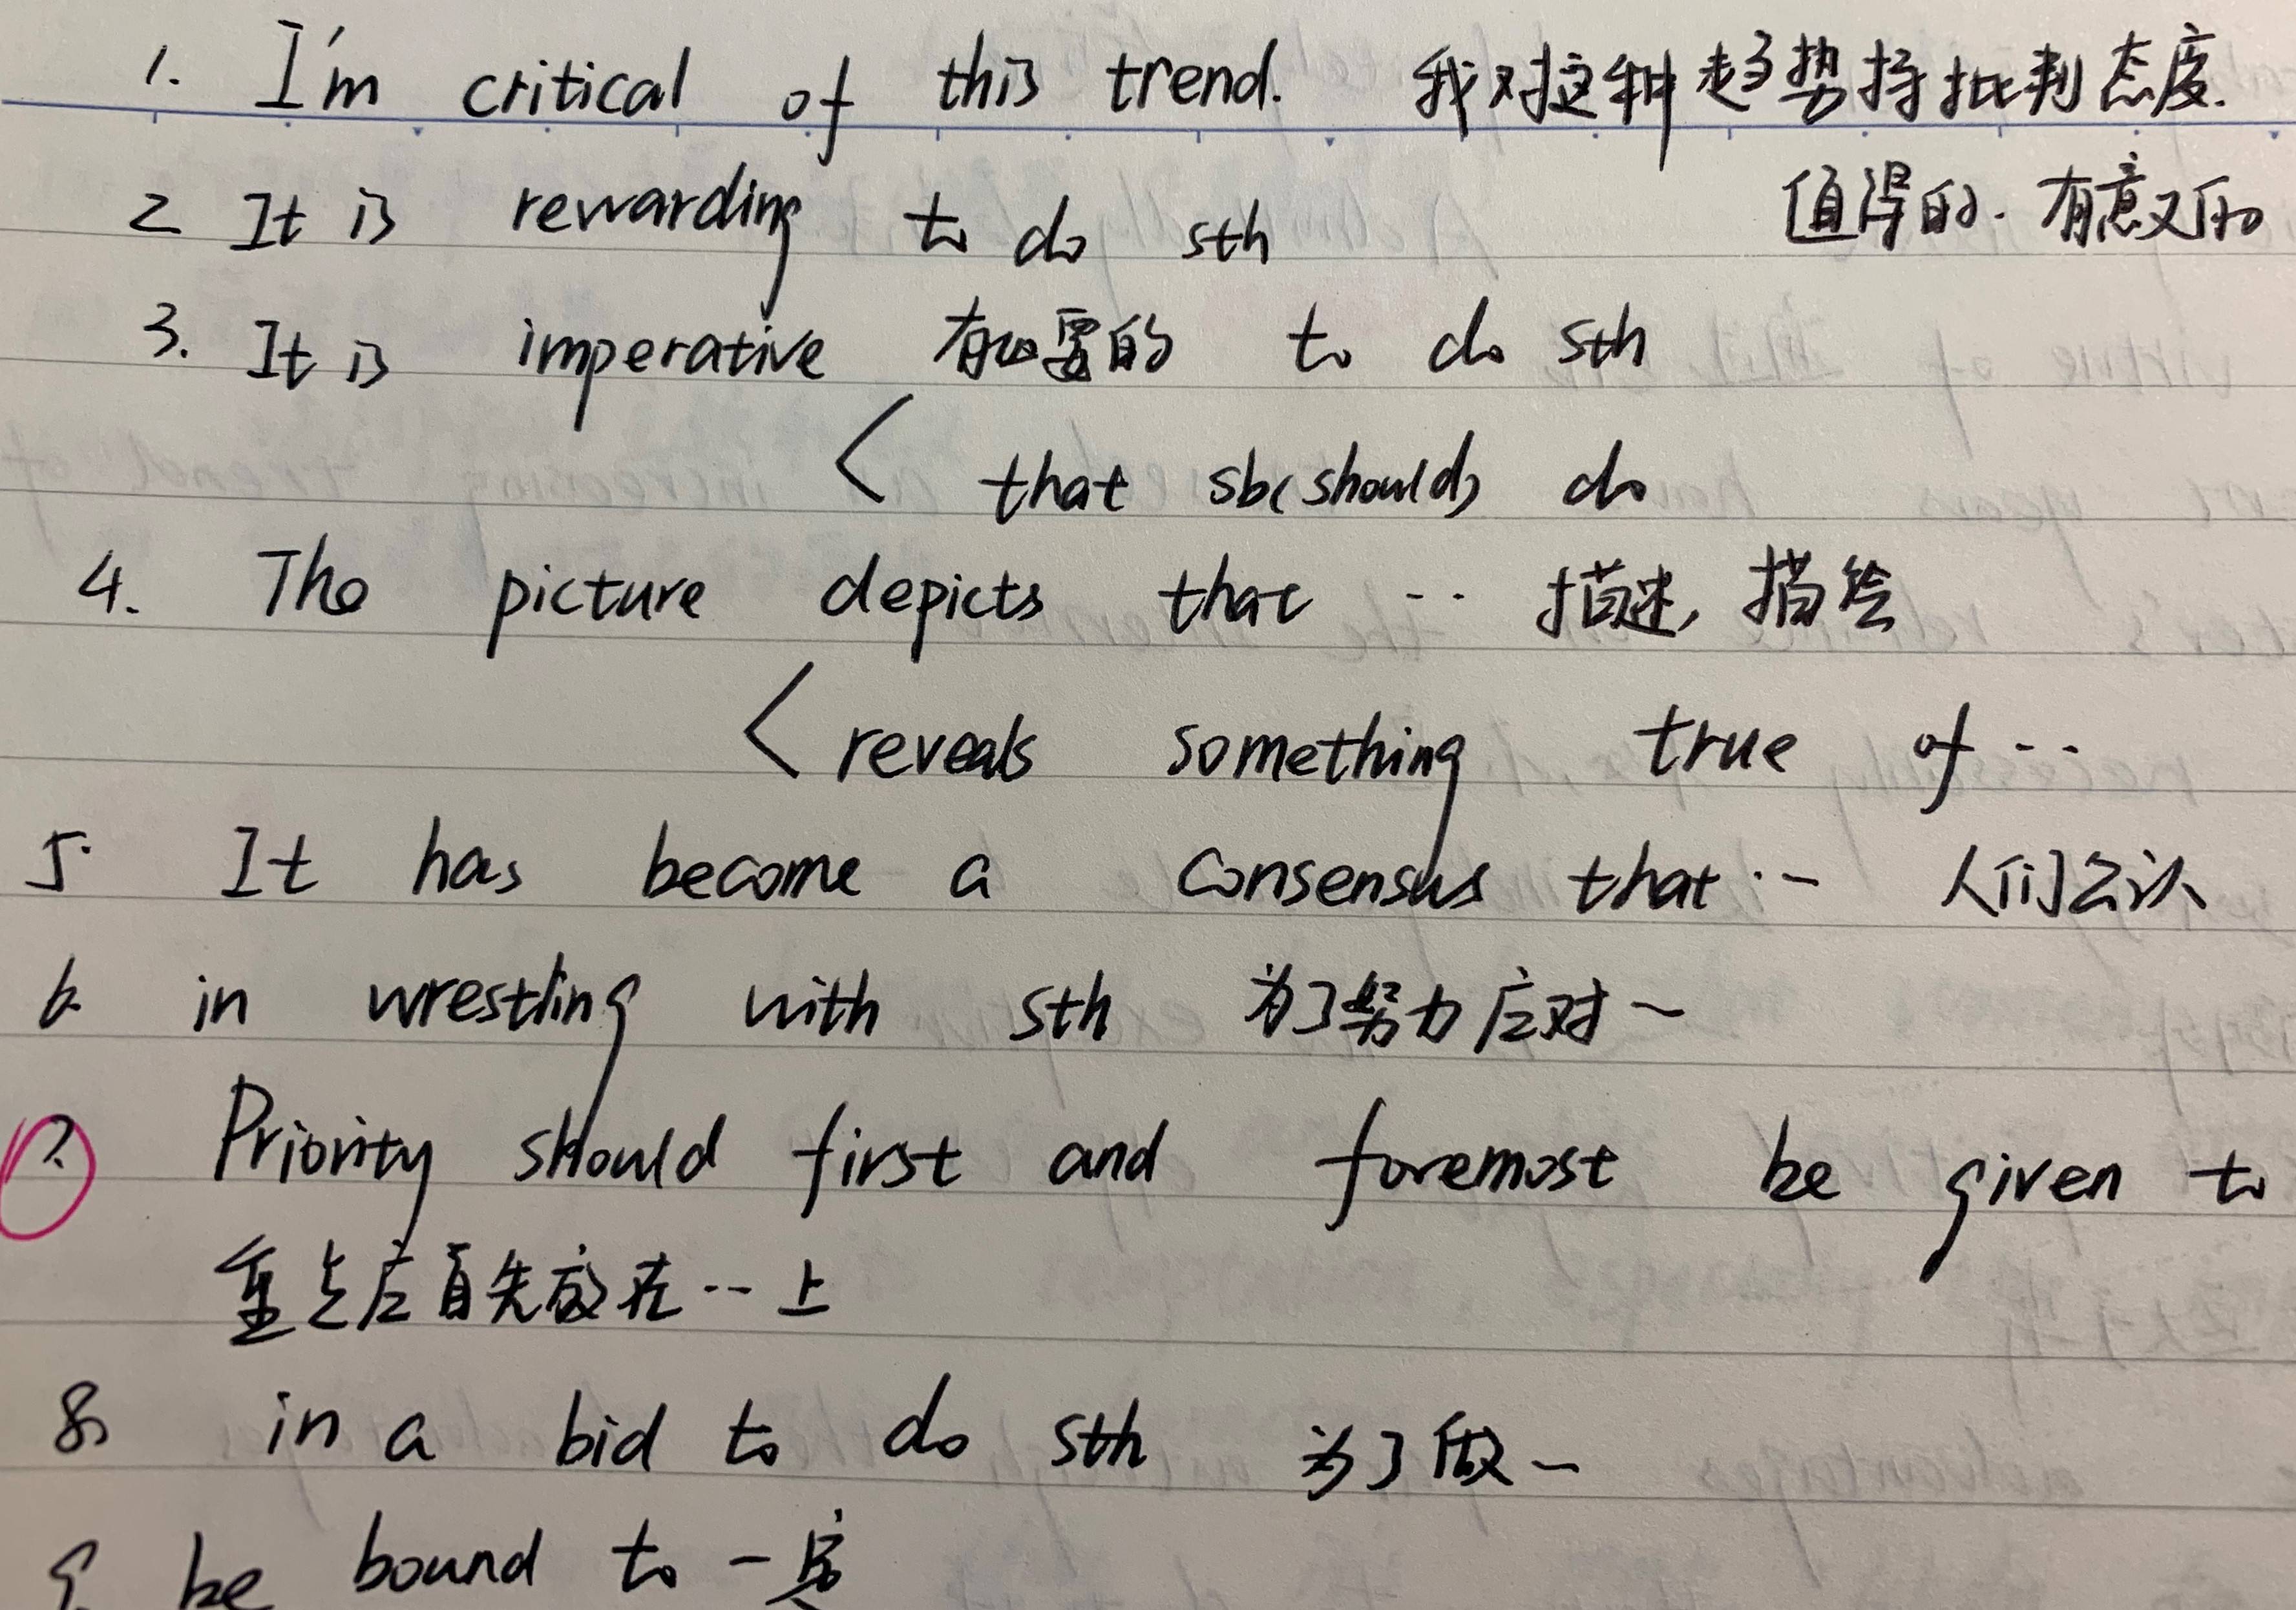 1. I'm critical of this trend. 我对这种趋势持批判态度.
2 It is rewarding to do sth 值得的. 有意义的
3. It is imperative 有必要的 to do sth
< that sb(should) do
4. The picture depicts that ·· 描述, 描绘
< reveals something true of ··
5. It has become a consensus that ·· 人们公认
6. in wrestling with sth 为了努力应对~
7. Priority should first and foremost be given to
重点应首先放在··上
8. in a bid to do sth 为了做~
9. be bound to 一定